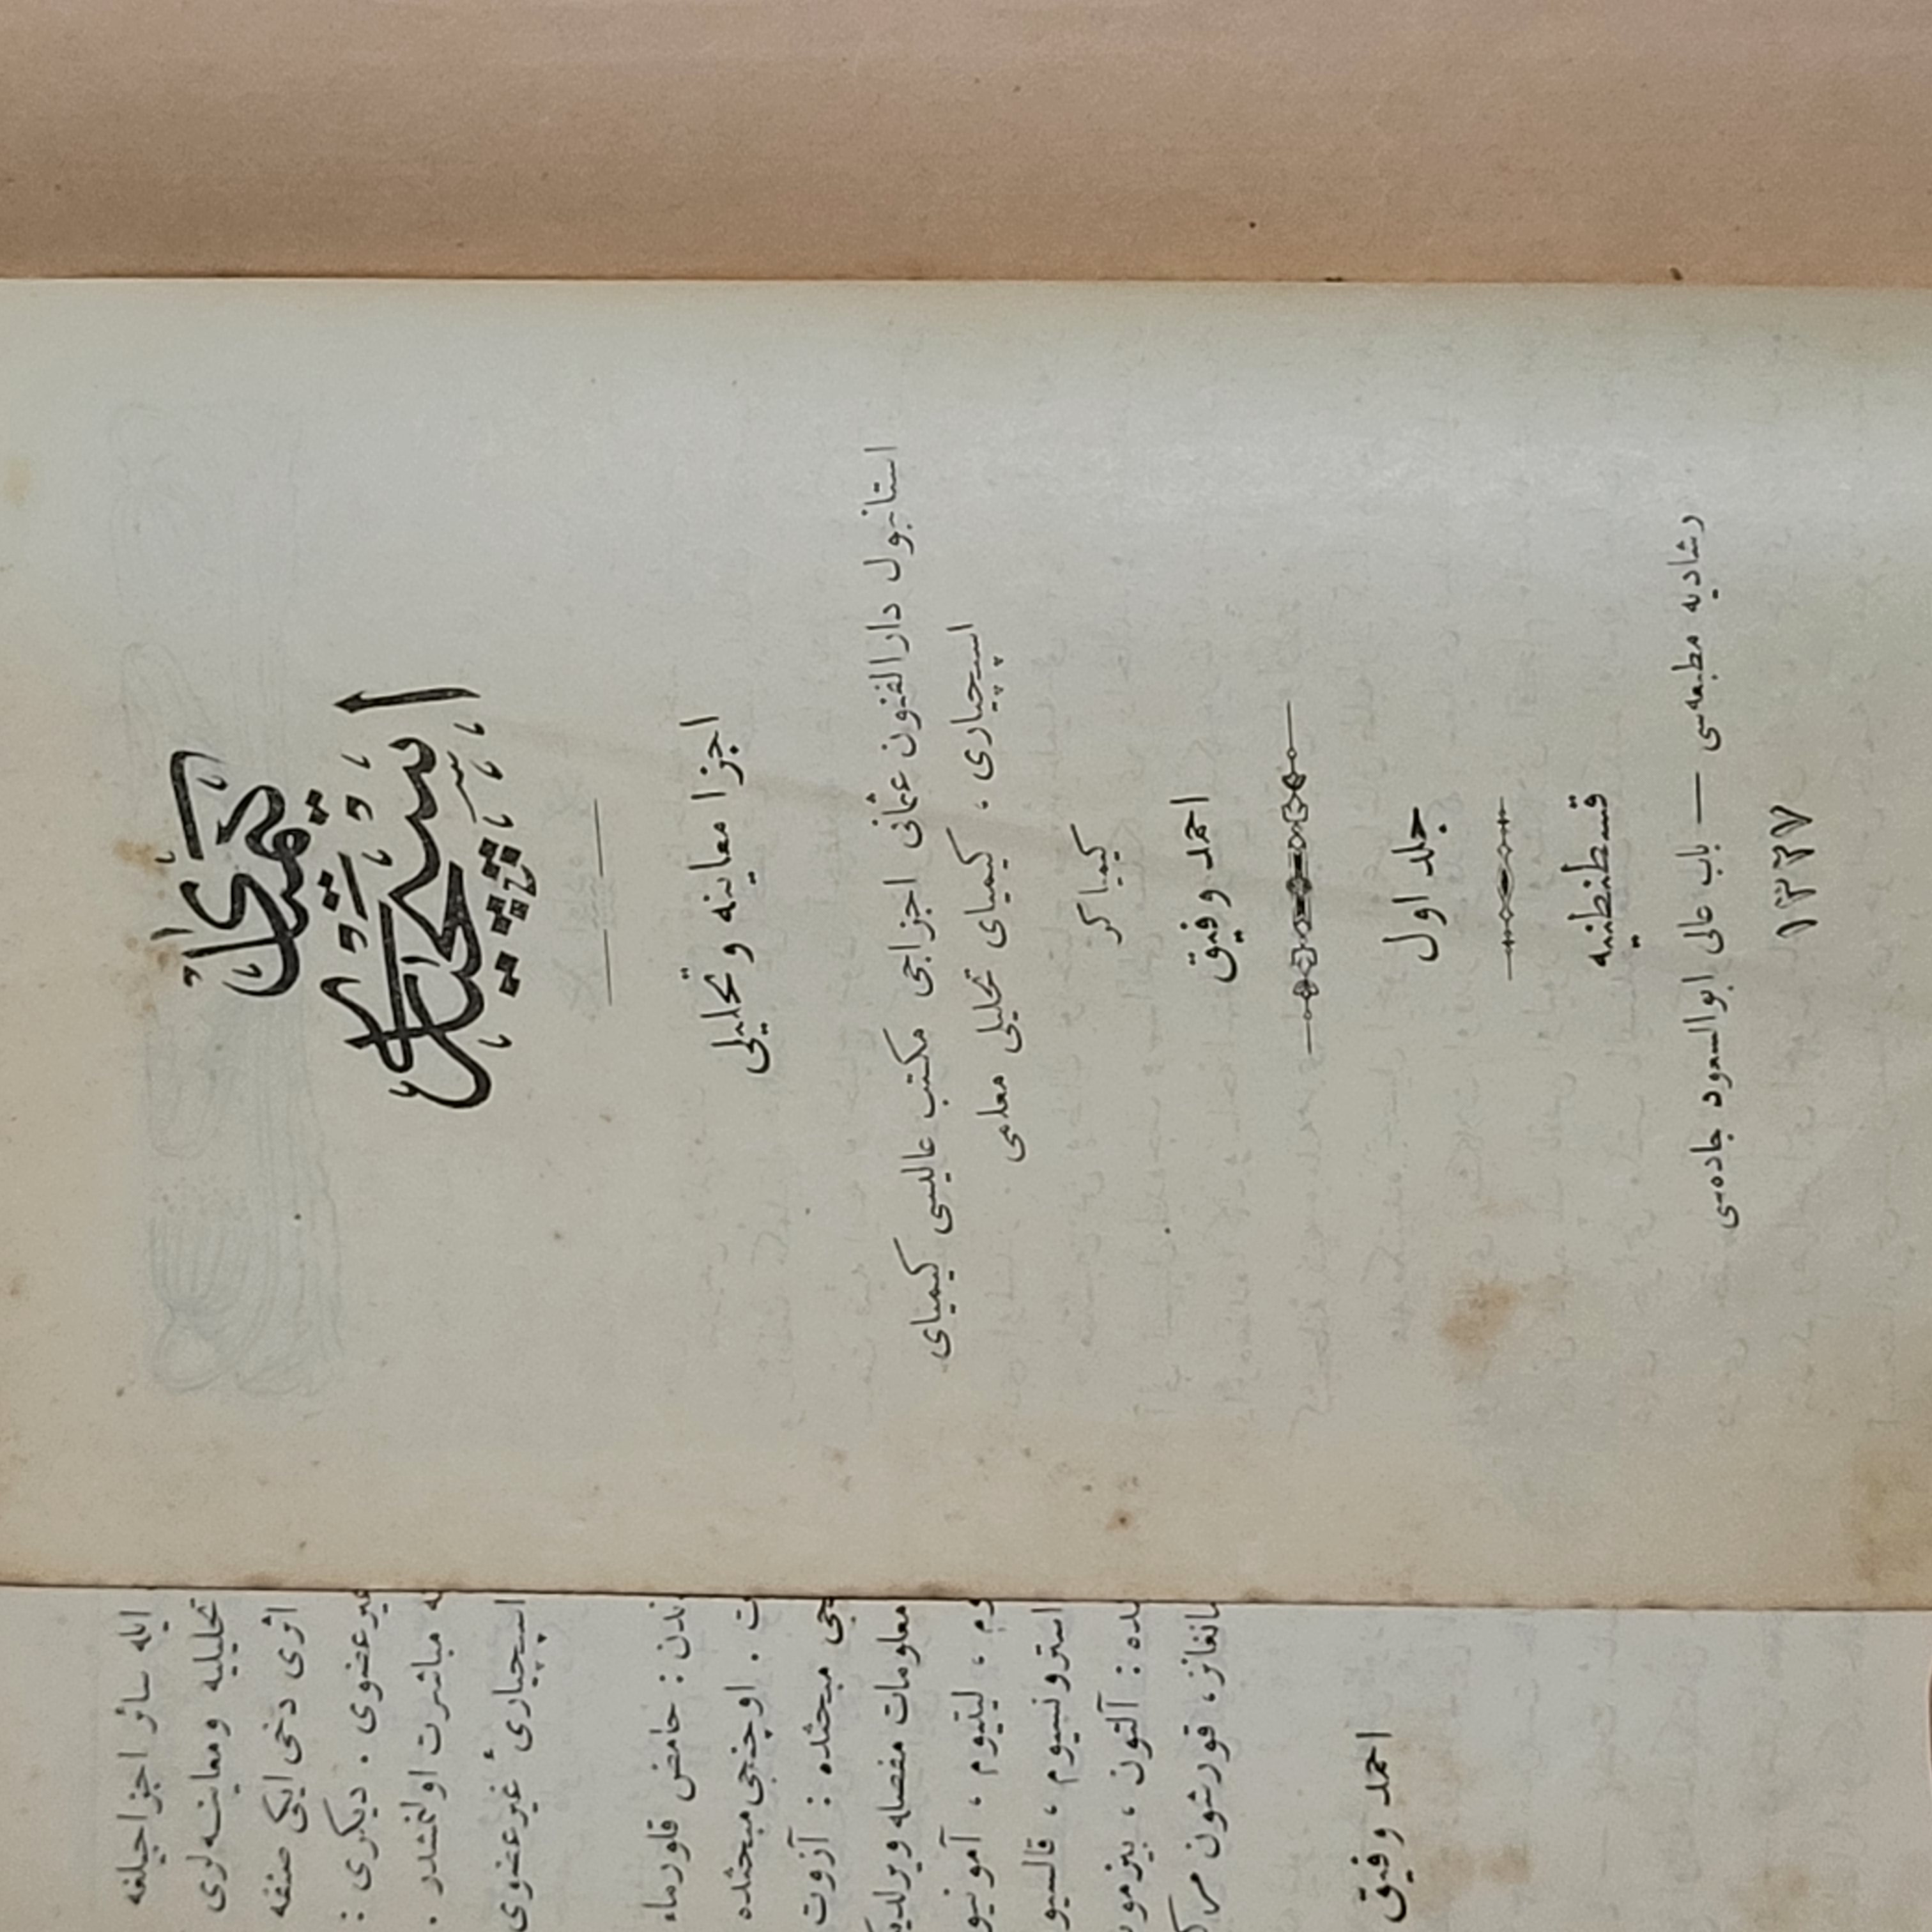 كیمیای
اسپنچیاری
اجزا معاینه و تحلیلی
استانبول دارالفنون عثمانی اجزاجی مکتب عالیسی کیمیای
اسپنچیاری ، کیمیای تحلیلی معلمی
کیمیا کر
احمد وفیق
جلد اول
قسطنطنیه
رشادیه مطبعه‌سی — باب عالی ابوالسعود جاده‌سی
١٣٢٧
ایله سائر اجزاجیلغه
تحلیلیه و معاینه‌لری
اثری دخی ایکی صنفه
غیر عضوی . دیکری :
مباشرت اولنمشدر .
اسپنچیاری غیر عضوی
ندن : حامض قلورماء
. اوچنجی مبحثده
مبحثده : آزوت
معلومات مفصله ویرلدیـ
وم ، لیتیوم ، آمونیو
استرونسیوم ، قالسیو
ده : آلتون ، بیزموت
قورشون
احمد وفیق